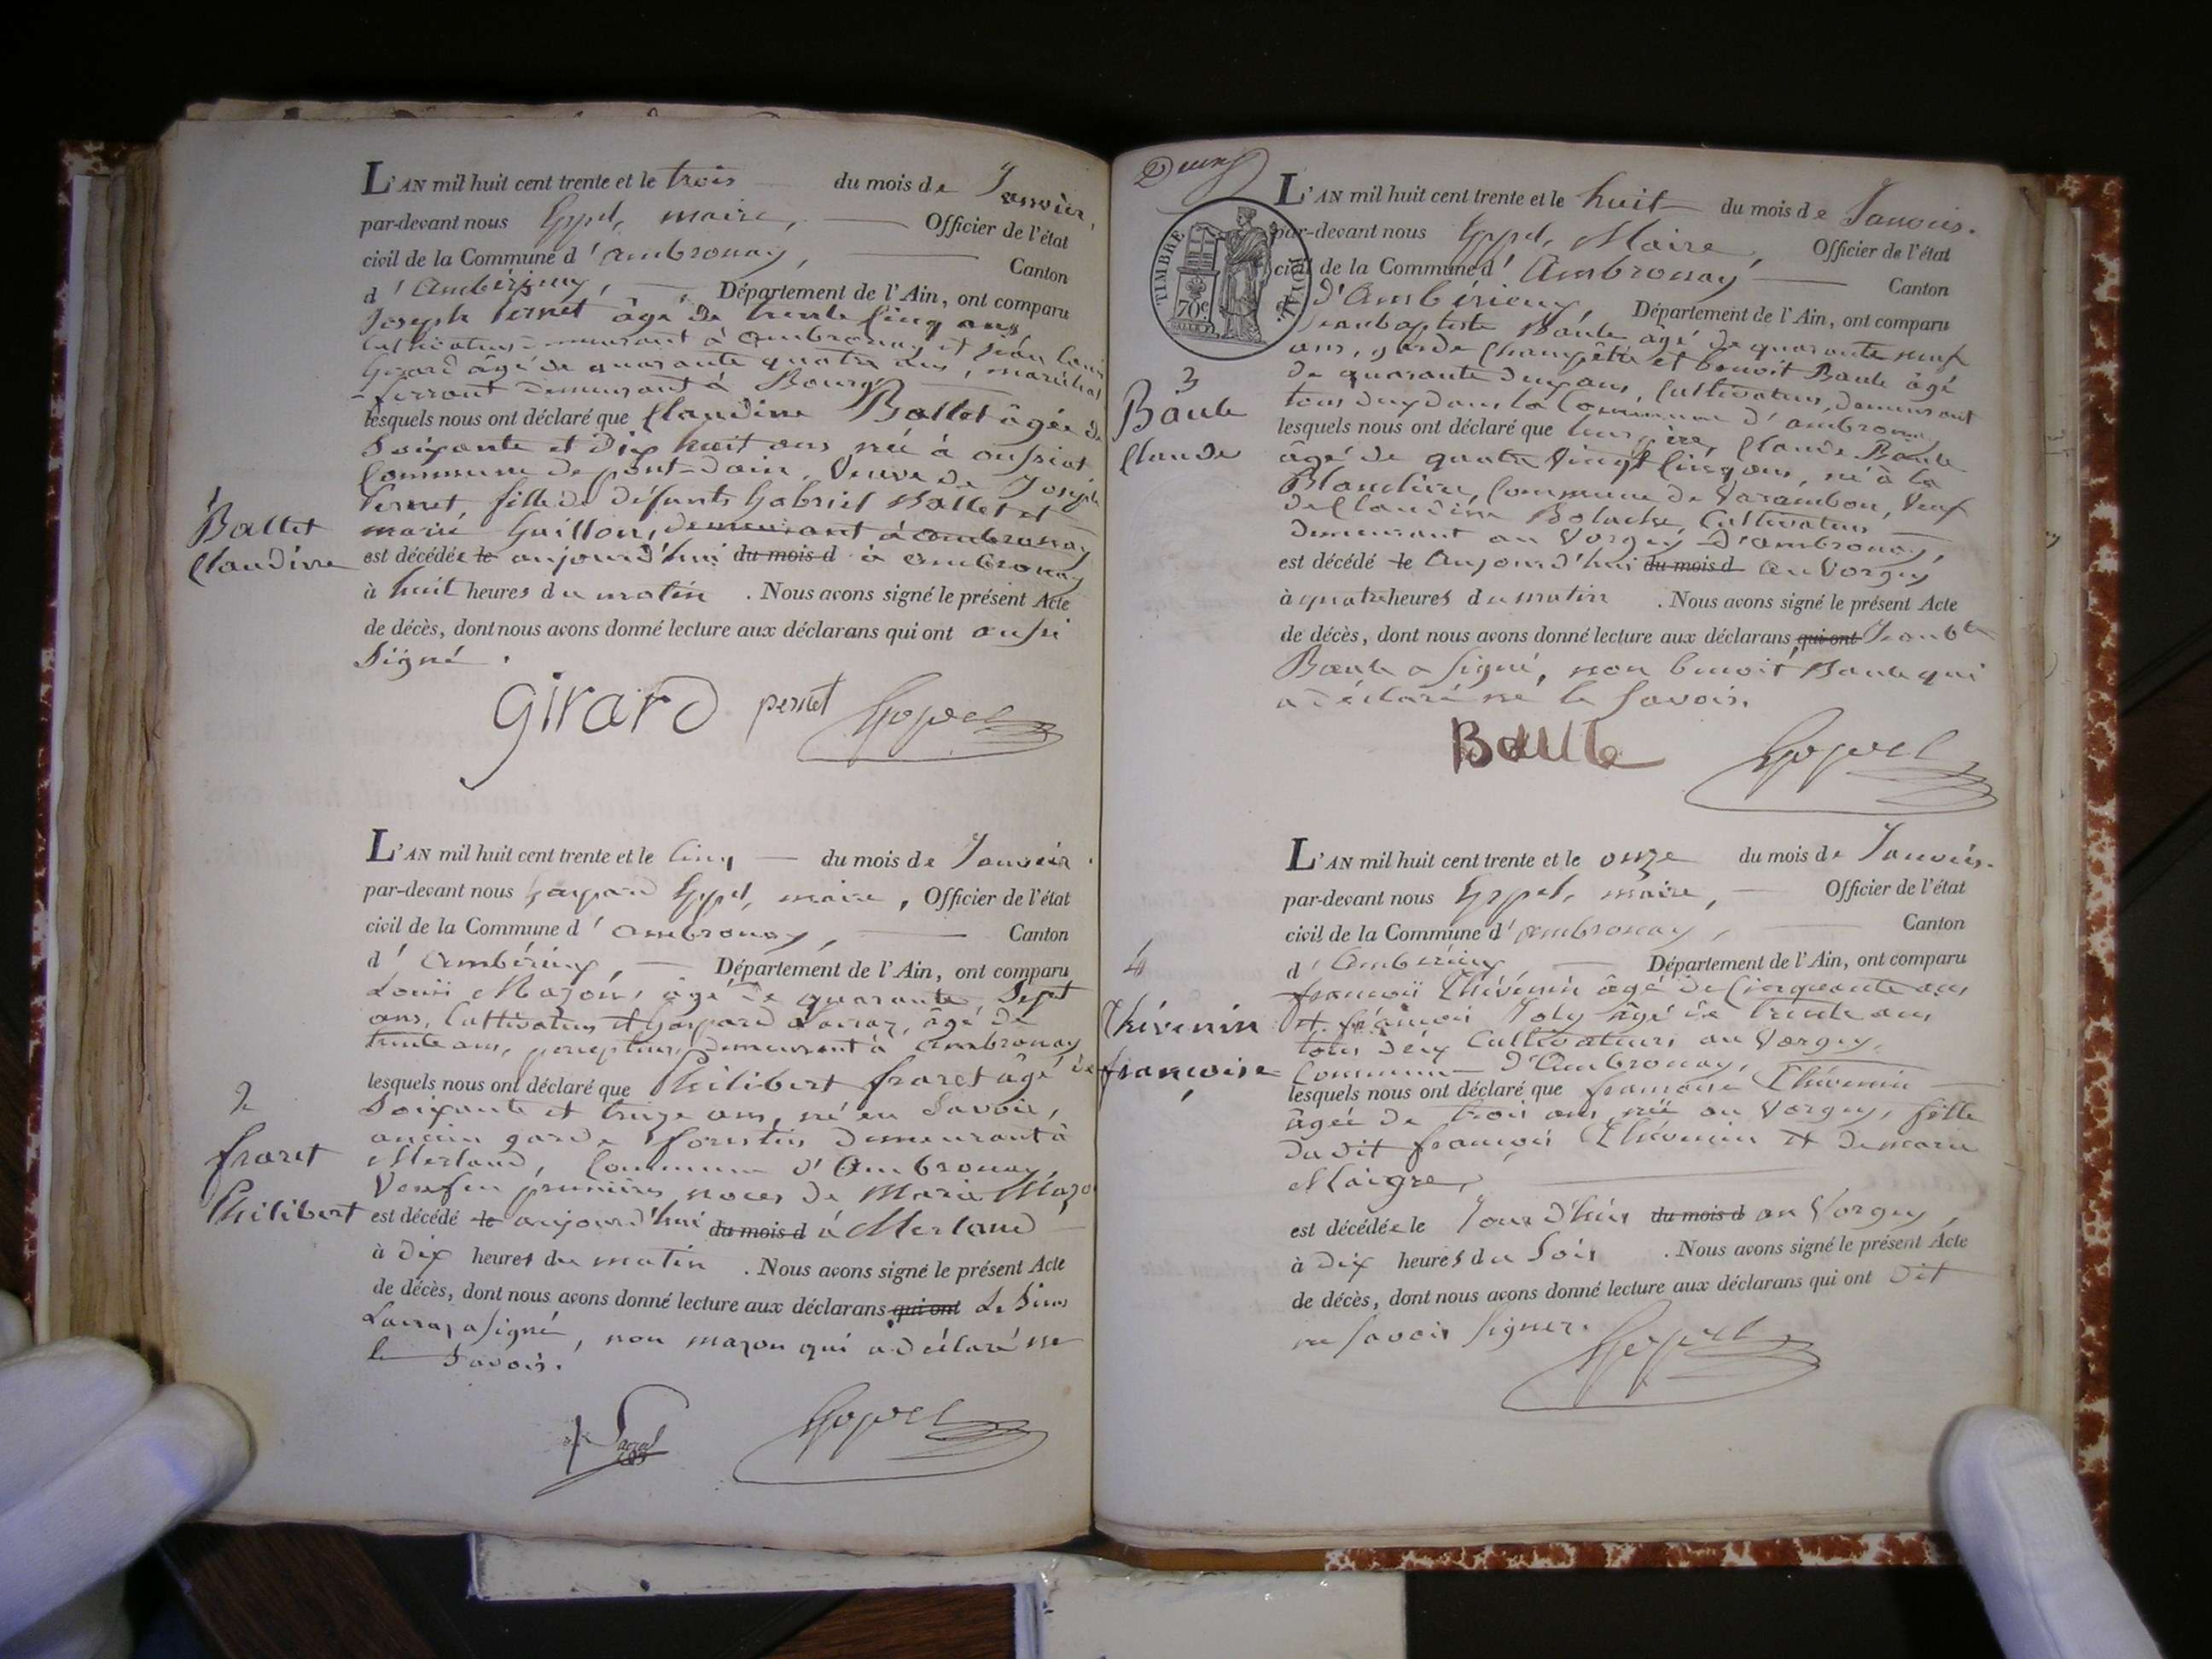 L'AN mil huit cent trente et le trois du mois de Janvier,
par-devant nous Gyppel, maire, Officier de l'état
civil de la Commune d'ambronay, Canton
d'Ambérieux, Département de l'Ain, ont comparu
Joseph Pernet âgé de trente cinq ans
cultivateur demeurant à ambronay et jean louis
Girard âgé de quarante quatre ans, maréchal
ferrant demeurant à Bourg
lesquels nous ont déclaré que Claudine Ballet âgée de
Soixante et Dix huit ans née à oussiat
Commune de pont-dain, Veuve de Joseph
Pernet, fille de défunts Gabriel Ballet et
marie Guillon, demeurant à ambronay
1
Ballet
Claudine
est décédée le aujourd'hui du mois d à ambronay
à huit heures du matin . Nous avons signé le présent Acte
de décès, dont nous avons donné lecture aux déclarans qui ont aussi
Signé.
GIRARD pernet Gyppel
L'AN mil huit cent trente et le cinq du mois de Janvier.
par-devant nous Gaspard Gyppel, maire, Officier de l'état
civil de la Commune d'ambronay, Canton
d'Ambérieux, Département de l'Ain, ont comparu
Louis Mazon, âgé de quarante Sept
ans, Cultivateur et Gaspard Larraz, âgé de
trente ans, percepteur, demeurant à ambronay
lesquels nous ont déclaré que Philibert fraret âgé de
Soixante et treize ans, né en Savoie,
ancien garde forestier demeurant à
Merland, Commune d'Ambronay,
Veuf en premières noces de Marie Mazo
2
fraret
Philibert
est décédé le aujourd'hui du mois d à Merland
à Dix heures du matin . Nous avons signé le présent Acte
de décès, dont nous avons donné lecture aux déclarans qui ont Le Sieur
Larraz a signé, non mazon qui a déclaré ne
le Savoir.
Gyppel
Deux
TIMBRE ROYAL
70c
L'AN mil huit cent trente et le huit du mois de Janvier.
par-devant nous Gyppel, Maire, Officier de l'état
civil de la Commune d'Ambronay Canton
d'Ambérieux, Département de l'Ain, ont comparu
Jeanbaptiste Baule âgé de quarante neuf
ans, garde Champêtre et benoit Baule âgé
de quarante deux ans, Cultivateur, demeurant
tous deux dans la Commune d'ambronay
3
Baule
Claude
lesquels nous ont déclaré que leur père, Claude Baule
âgé de quatre Vingt cinq ans, né à la
Blanchire, Commune de Varambon, Veuf
de Claudine Bolache, Cultivateur
demeurant au Vorgey d'ambronay,
est décédé le Aujourd'hui du mois d au Vorgey
à quatre heures du matin . Nous avons signé le présent Acte
de décès, dont nous avons donné lecture aux déclarans, qui ont Jean bte
Baule a signé, non benoit Baule qui
a déclaré ne le Savoir.
Baule Gyppel
L'AN mil huit cent trente et le onze du mois de Janvier.
par-devant nous Gyppel, maire, Officier de l'état
civil de la Commune d'ambronay, Canton
d'Ambérieux Département de l'Ain, ont comparu
françois Thévenin âgé de Cinquante ans
et françois Joly âgé de trente ans
tous deux Cultivateurs au Vorgey,
Commune d'Ambronay,
4
Thévenin
françoise
lesquels nous ont déclaré que françoise Thévenin
âgée de trois ans née au Vorgey, fille
du dit françois Thévenin et de marie
Maigre,
est décédée le Jour d'hier du mois d au Vorgey,
à Dix heures du Soir . Nous avons signé le présent Acte
de décès, dont nous avons donné lecture aux déclarans qui ont dit
ne Savoir Signer.
Gyppel